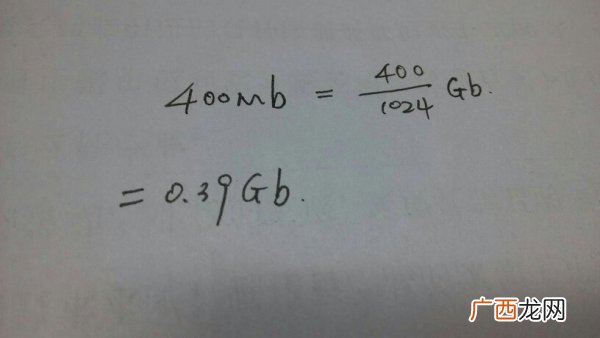 400Mb = 400/1024 Gb.
= 0.39Gb.
广西龙网